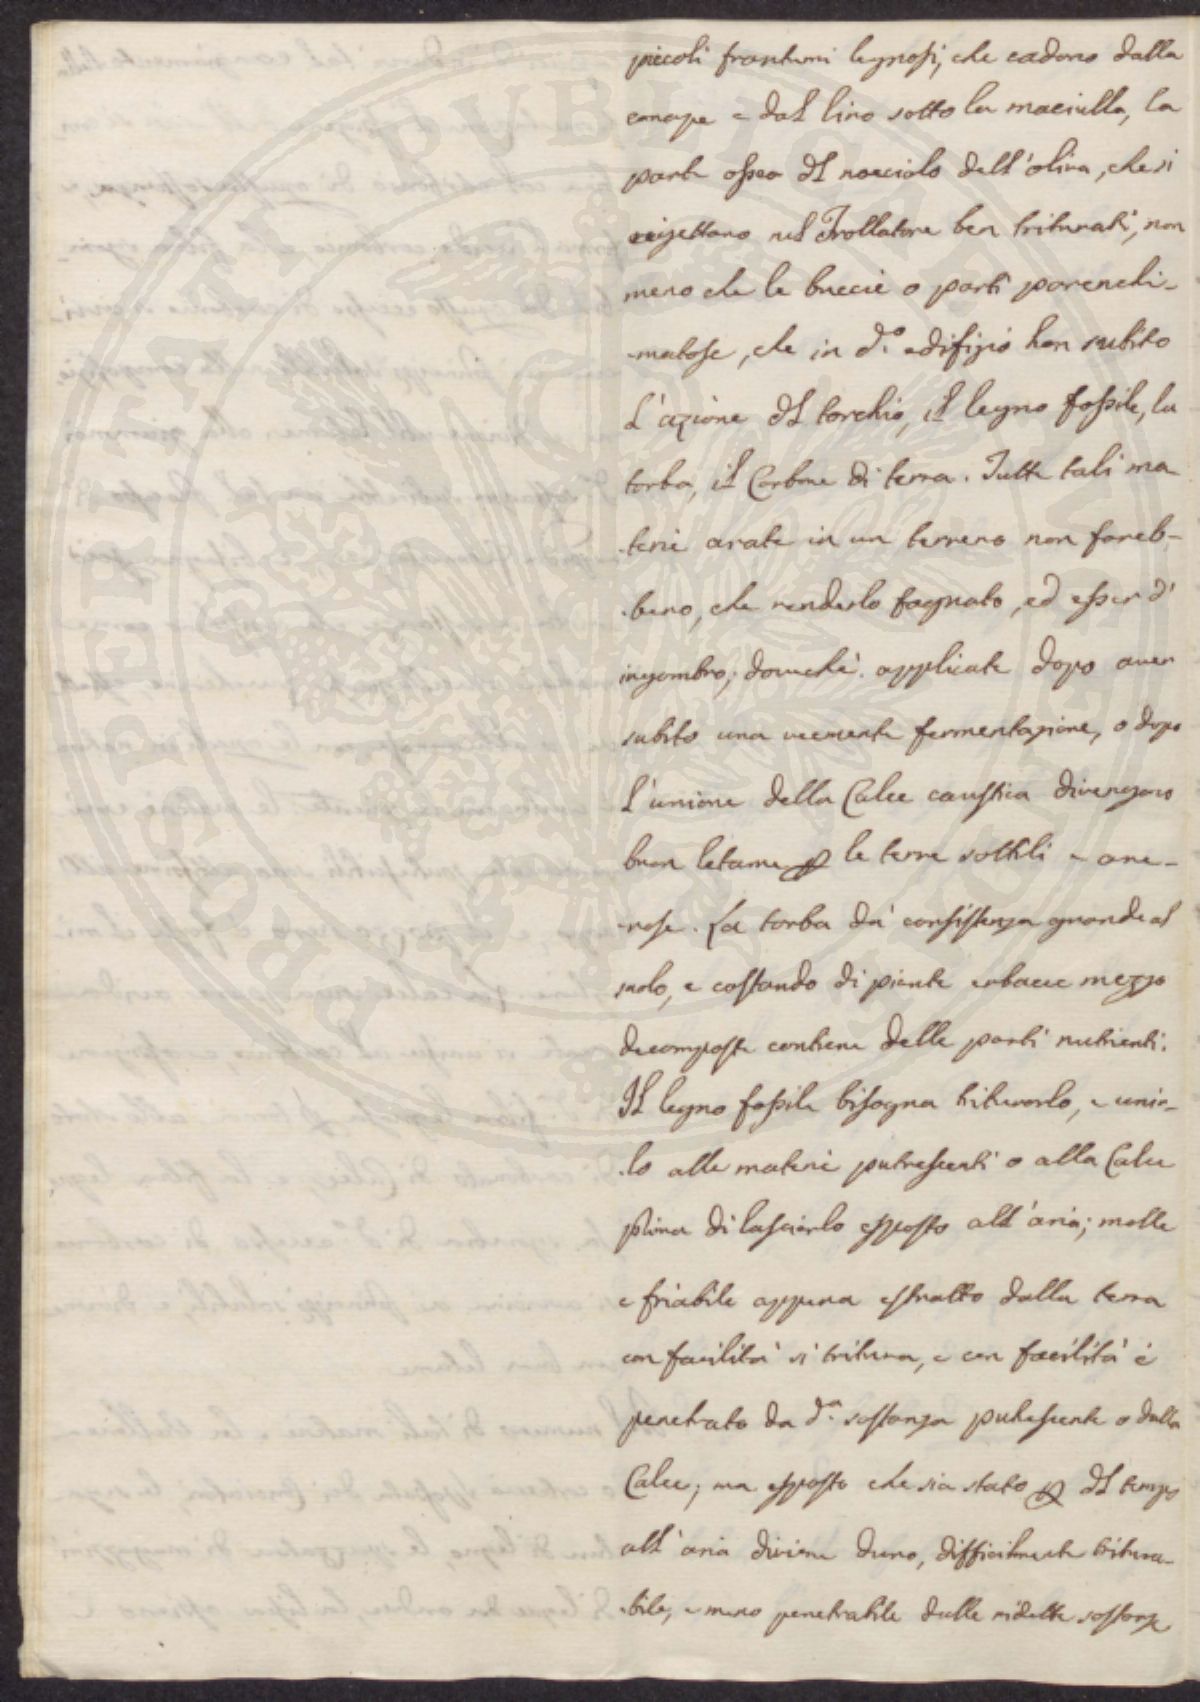 piccoli frantumi legnosi, che cadono dalla
canape e dal lino sotto la maciulla, la
parte ossea del nocciolo dell'oliva, che si
rigettano nel Frollatore ben triturati, non
meno che le buccie o parti parenchi-
-matose, che in d.o edifizio han subito
l'azione del torchio, il legno fossile, la
torba, il Carbone di terra. Tutte tali ma
-terie arate in un terreno non fareb-
-bero, che renderlo fognato, ed esser d'
ingombro; dovechè applicate dopo aver
subito una veemente fermentazione, o dopo
l'unione della Calce caustica divengono
buon letame p le terre sottili e are-
-nose. La torba dà consistenza grande al
suolo, e costando di piante erbacee mezzo
decomposte contiene delle parti nutrienti.
Il legno fossile bisogna triturarlo, e unir-
-lo alle materie putrescenti o alla Calce
prima di lasciarlo esposto all'aria; molle
e friabile appena estratto dalla terra
con facilità si tritura, e con facilità è
penetrato da d.a sostanza putrescente o dalla
Calce; ma esposto che sia stato p del tempo
all'aria diviene duro, difficilmente tritura-
-bile, e meno penetrabile dalle ridette sostanze
PROSPERITATI PUBLICAE AUGENDAE